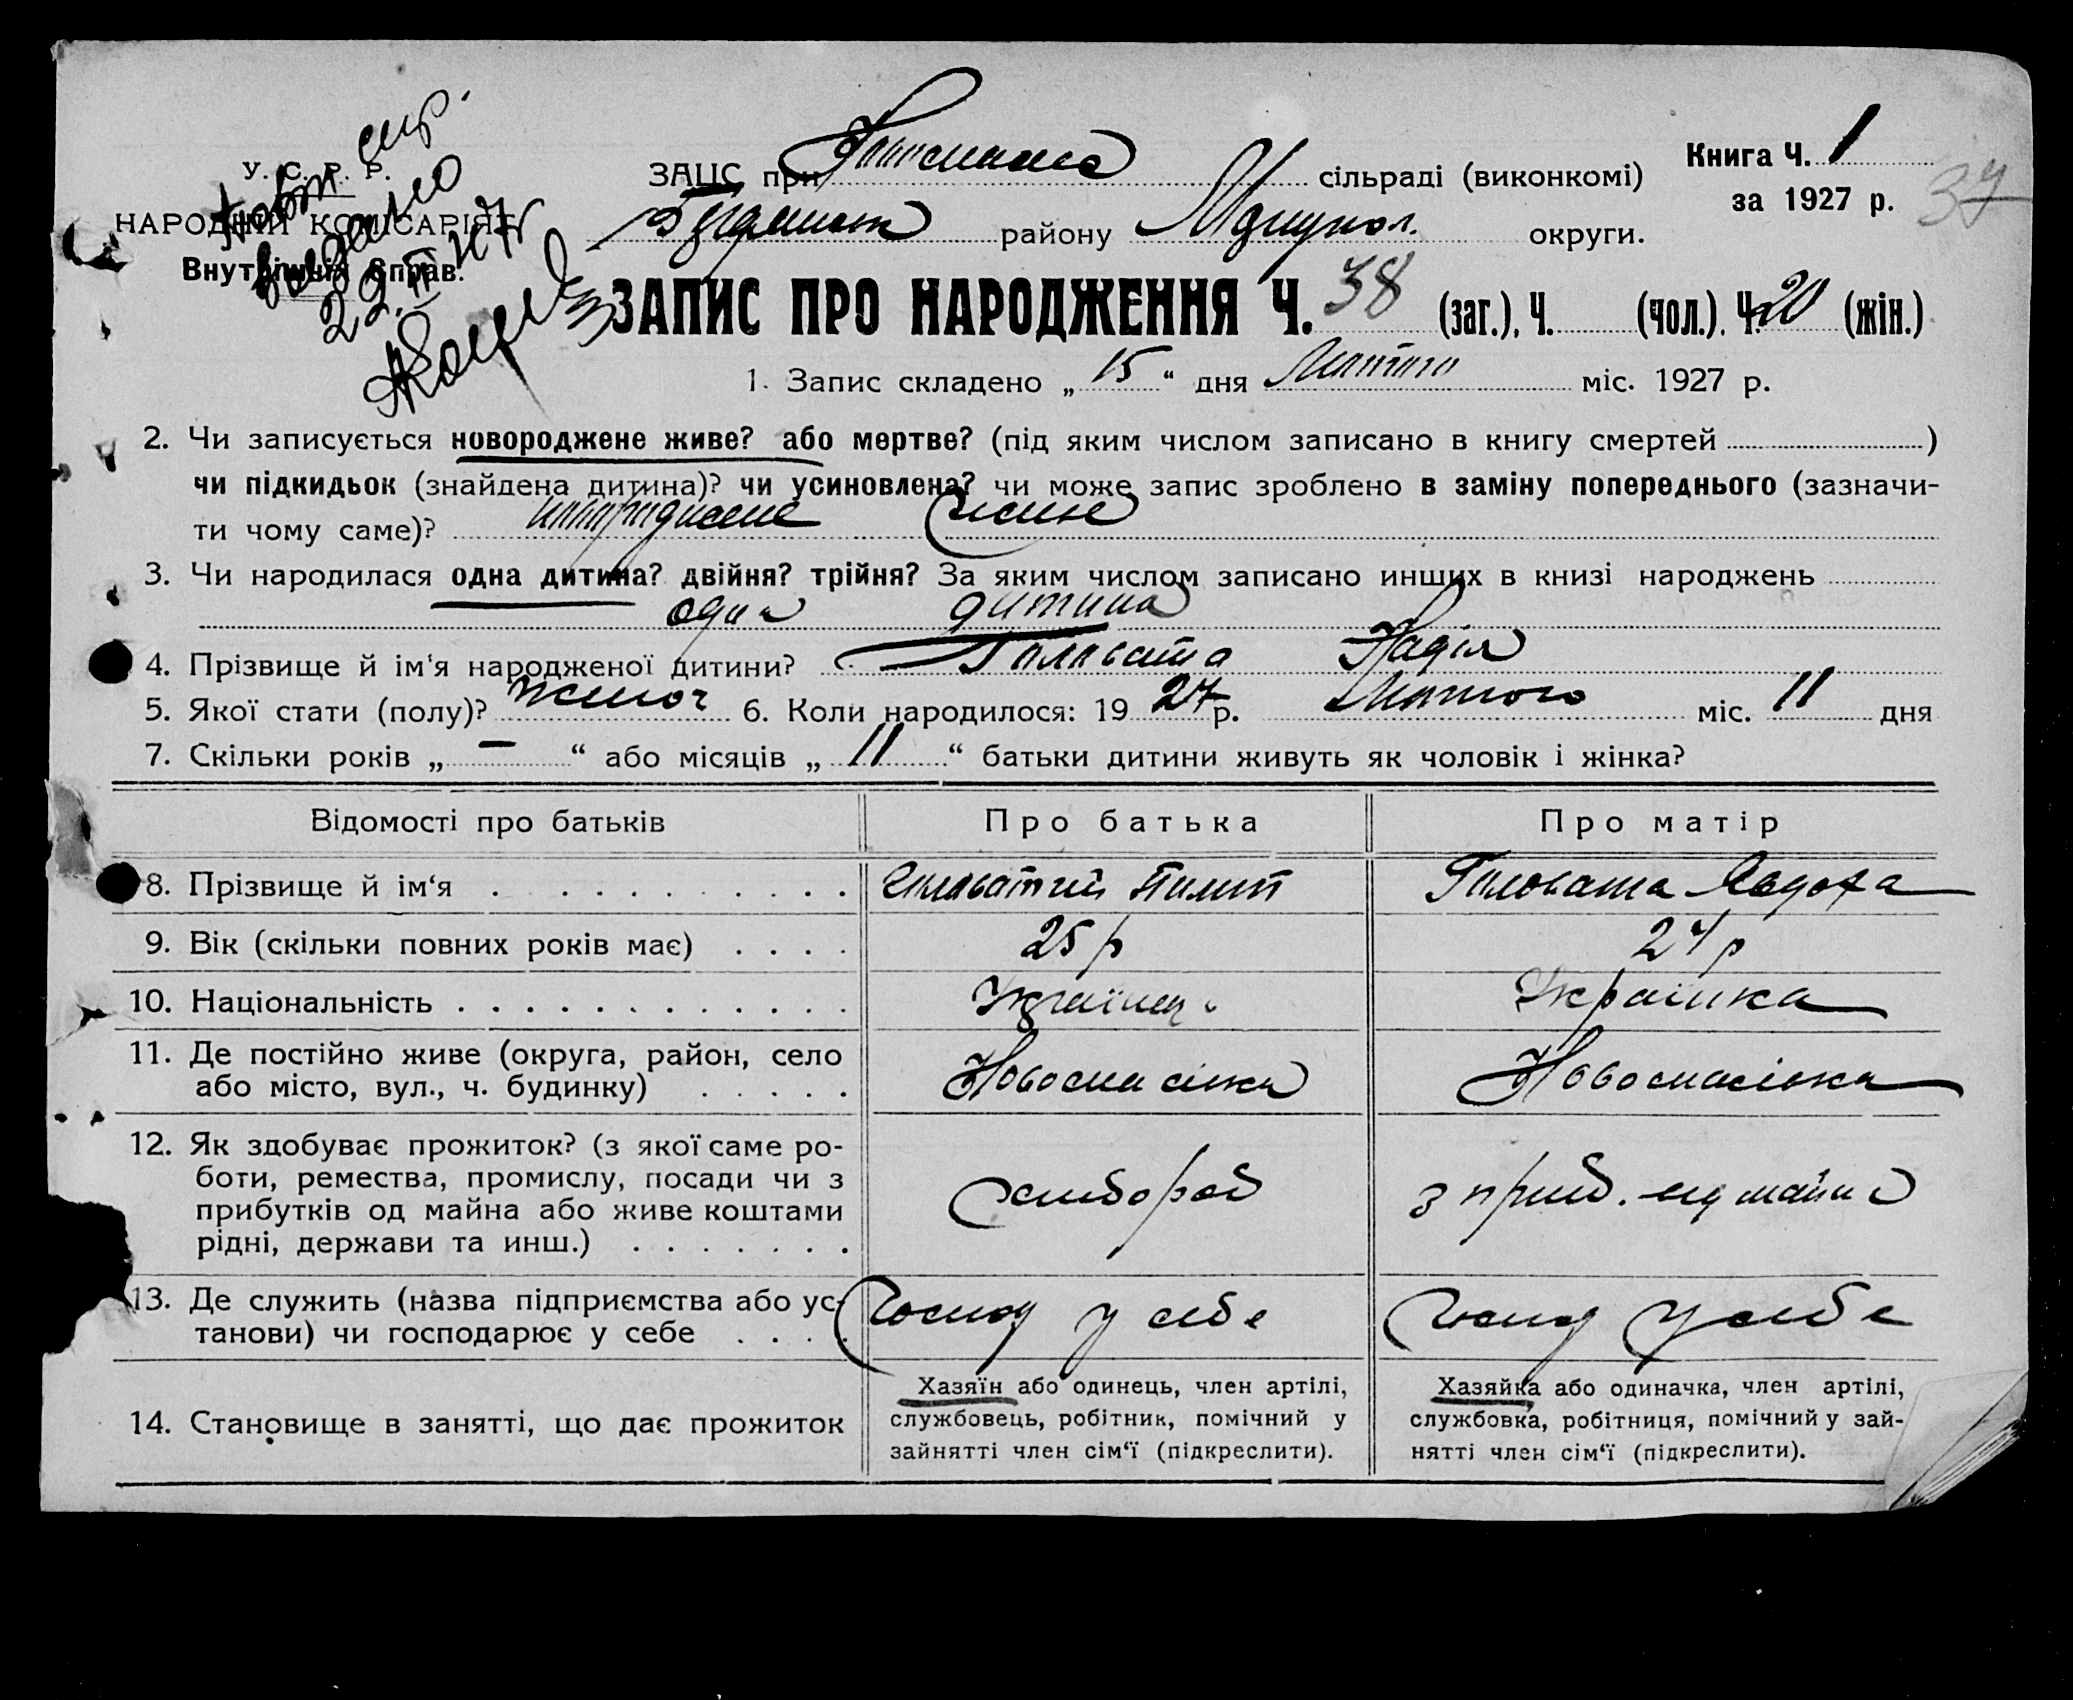 У. С. Р. Р.
НАРОДНІЙ КОМІСАРІЯТ
Внутрішніх Справ.
видано
22.
ЗАЦС при сільраді (виконкомі)
району округи.
Книга Ч. 1
за 1927 р.
37
ЗАПИС ПРО НАРОДЖЕННЯ Ч. 38 (заг.), Ч. (чол.). Ч. 20 (жін.)
1. Запис складено „ 15 “ дня Лютого міс. 1927 р.
2. Чи записується новороджене живе? або мертве? (під яким числом записано в книгу смертей )
чи підкидьок (знайдена дитина)? чи усиновлена? чи може запис зроблено в заміну попереднього (зазначи-
ти чому саме)?
3. Чи народилася одна дитина? двійня? трійня? За яким числом записано инших в книзі народжень
одна дитина
4. Прізвище й ім‘я народженої дитини? Головата Надія
5. Якої стати (полу)? жіноч 6. Коли народилося: 19 27 р. Лютого міс. 11 дня
7. Скільки років „ – “ або місяців „ 11 “ батьки дитини живуть як чоловік і жінка?
Відомості про батьків Про батька Про матір
8. Прізвище й ім‘я Головатий Пилип Головата Явдоха
9. Вік (скільки повних років має) 25 р 24 р
10. Національність Українец Українка
11. Де постійно живе (округа, район, село
або місто, вул., ч. будинку) Новоспасівка Новоспасівка
12. Як здобуває прожиток? (з якої саме ро-
боти, ремества, промислу, посади чи з
прибутків од майна або живе коштами
рідні, держави та инш.) хлібороб з приб. од майна
13. Де служить (назва підприємства або ус-
танови) чи господарює у себе Господ у себе Господ у себе
14. Становище в занятті, що дає прожиток
Хазяїн або одинець, член артілі,
службовець, робітник, помічний у
зайнятті член сім‘ї (підкреслити).
Хазяйка або одиначка, член артілі,
службовка, робітниця, помічний у зай-
нятті член сім‘ї (підкреслити).